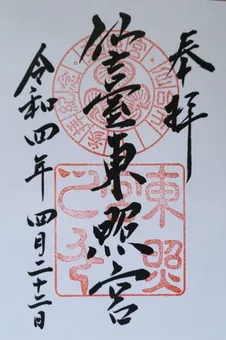 奉拝
仙臺東照宮
令和四年 四月二十二日
東照